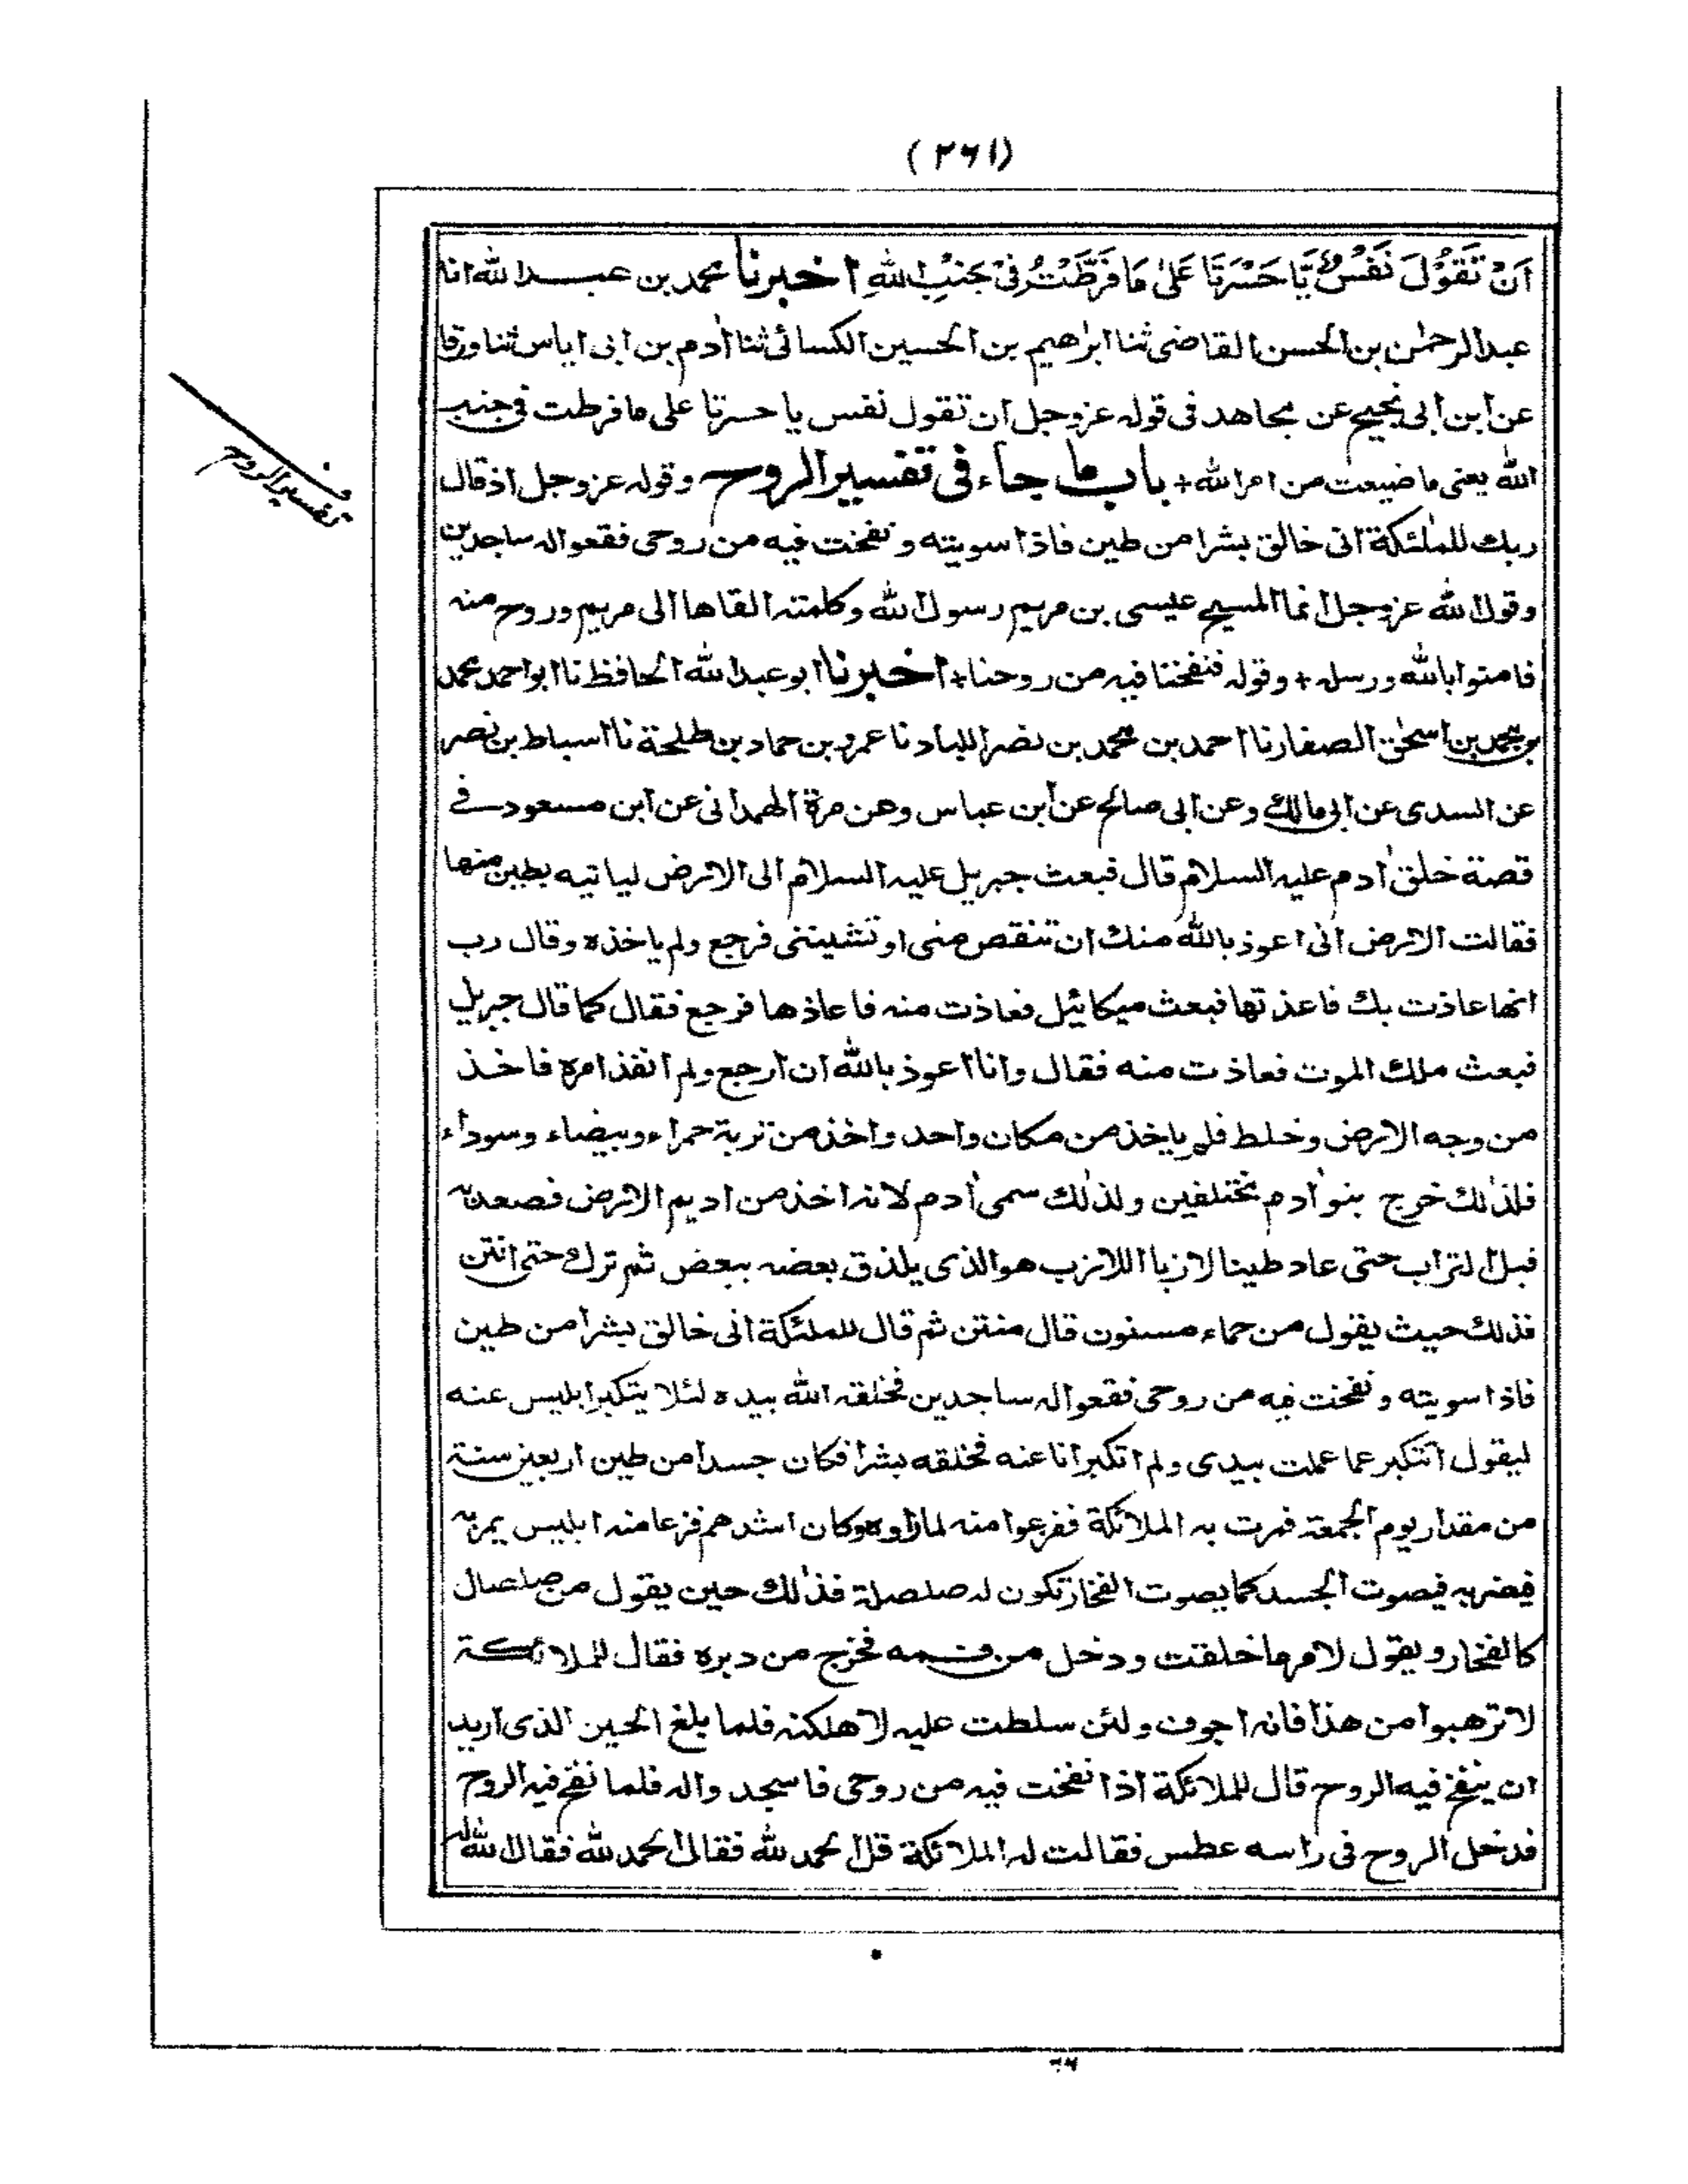 (٢٦١)
اَنْ تَقُوْلَ نَفْسٌ يَّا حَسْرَتَا عَلٰى مَا فَرَّطْتُ فِىْ جَنْبِ اللهِ اخبرنا محمد بن عبد الله انا
عبد الرحمٰن بن الحسن القاضى ثنا ابرٰهيم بن الحسين الكسائى ثنا اٰدم بن ابى اياس ثنا ورقا
عن ابن ابى نجيح عن مجاهد فى قوله عزوجل ان تقول نفس يا حسرتا على ما فرطت فى جنب
الله يعنى ما ضيعت من امر الله + باب ما جاء فى تفسير الروح وقوله عزوجل اذ قال
تفسير الروح
ربك للملٰئكة انى خالق بشرا من طين فاذا سويته ونفخت فيه من روحى فقعوا له ساجدين
وقول الله عزوجل انما المسيح عيسى بن مريم رسول الله وكلمته القاها الى مريم وروح منه
فامنوا بالله ورسله + وقوله فنفخنا فيه من روحنا + اخبرنا ابو عبد الله الحافظ نا ابو احمد محمد
بن محمد بن اسحٰق الصفار نا احمد بن محمد بن نضر اللباد نا عمرو بن حماد بن طلحة نا اسباط بن نصر
عن السدى عن ابى مالك وعن ابى صالح عن ابن عباس وعن مرة الهمدانى عن ابن مسعود فى
قصة خلق اٰدم عليه السلام قال فبعث جبريل عليه السلام الى الارض لياتيه بطين منها
فقالت الارض انى اعوذ بالله منك ان تنقص منى او تشيننى فرجع ولم ياخذه وقال رب
انها عاذت بك فاعذتها فبعث ميكائيل فعاذت منه فاعاذها فرجع فقال كما قال جبريل
فبعث ملك الموت فعاذت منه فقال وانا اعوذ بالله ان ارجع ولم انفذ امره فاخذ
من وجه الارض وخلط فلم ياخذ من مكان واحد واخذ من تربة حمراء وبيضاء وسوداء
فلذٰلك خرج بنو اٰدم مختلفين ولذٰلك سمى اٰدم لانه اخذ من اديم الارض فصعد به
فبل التراب حتى عاد طينا لازبا اللازب هو الذى يلذق بعضه ببعض ثم ترك حتى انتن
فذلك حيث يقول من حماء مسنون قال منتن ثم قال للملئكة انى خالق بشرا من طين
فاذا سويته ونفخت فيه من روحى فقعوا له ساجدين فخلقه الله بيده لئلا يتكبر ابليس عنه
ليقول اتتكبر عما عملت بيدى ولم اتكبر انا عنه فخلقه بشرا فكان جسدا من طين اربعين سنة
من مقدار يوم الجمعة فمرت به الملائكة ففزعوا منه لما راوه وكان اشدهم فزعا منه ابليس يمر به
فيضربه فيصوت الجسد كما يصوت الفخار تكون له صلصلة فذٰلك حين يقول من صلصال
كالفخار ويقول لامر ما خلقت ودخل من فمه فخرج من دبره فقال للملائكة
لا ترهبوا من هذا فانه اجوف ولئن سلطت عليه لاهلكنه فلما بلغ الحين الذى اريد
ان ينفخ فيه الروح قال للملائكة اذا نفخت فيه من روحى فاسجدوا له فلما نفخ فيه الروح
فدخل الروح فى راسه عطس فقالت له الملائكة قل الحمد لله فقال الحمد لله فقال الله له